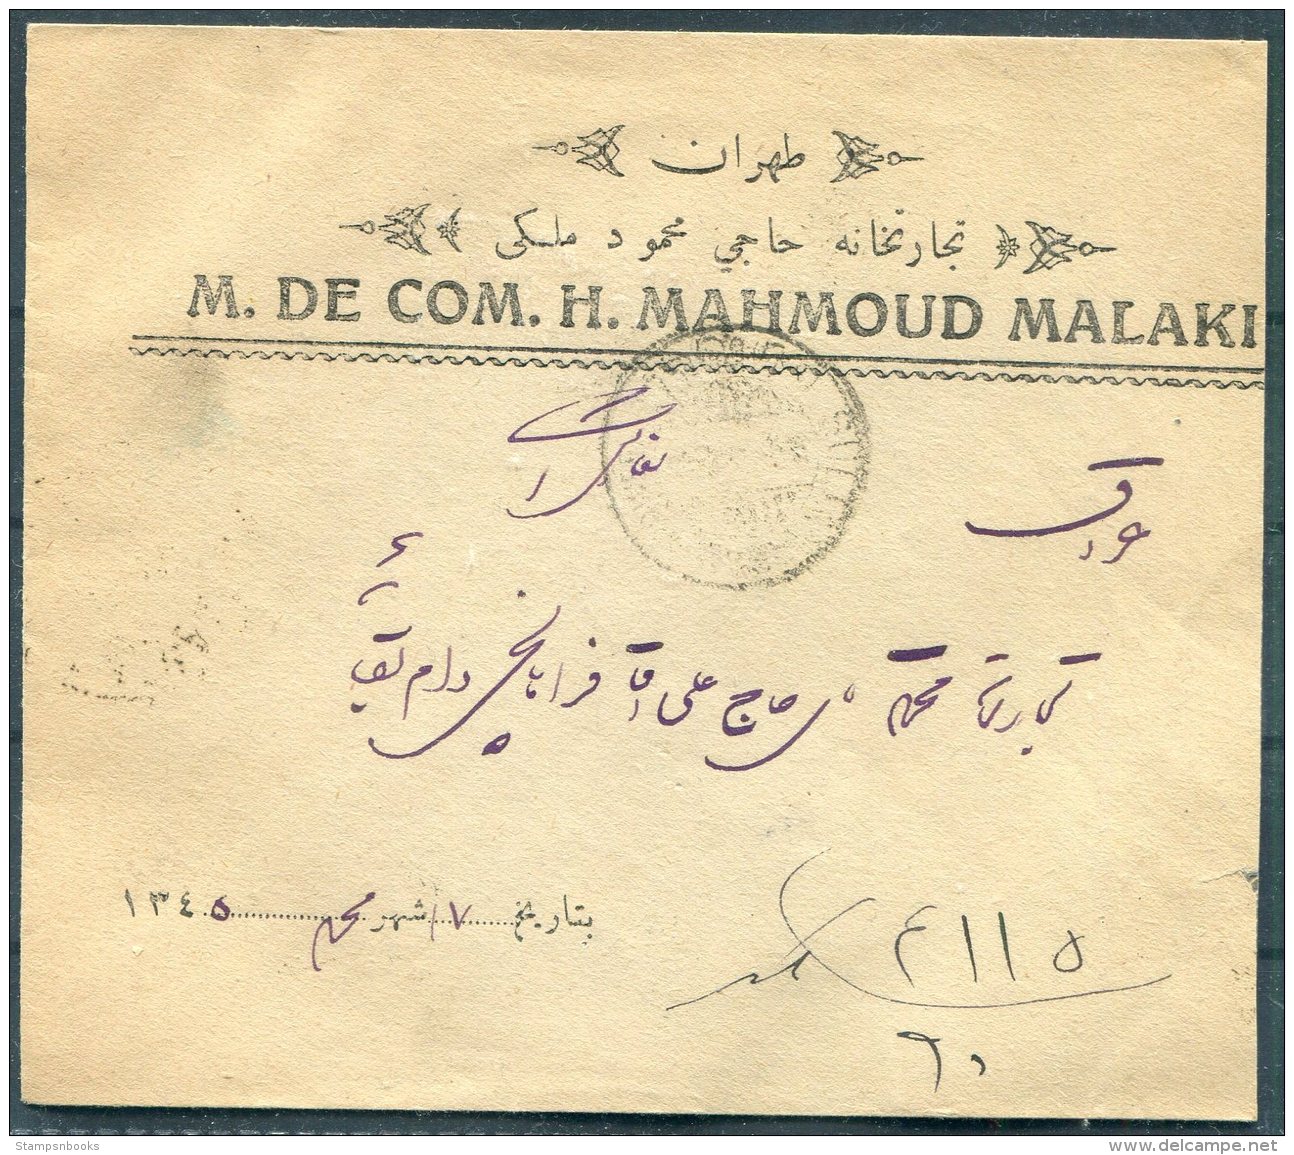 طهران
تجارتخانه حاجي محمود ملكي
M. DE COM. H. MAHMOUD MALAKI
عراق
تجارتخانه محترم حاج علی آقا فراهانی دام بقائه
بتاریخ ۱۷ شهر محرم ۱۳٤۵
۴۱۱۵
۶۰
Stampsnbooks
www.delcampe.net